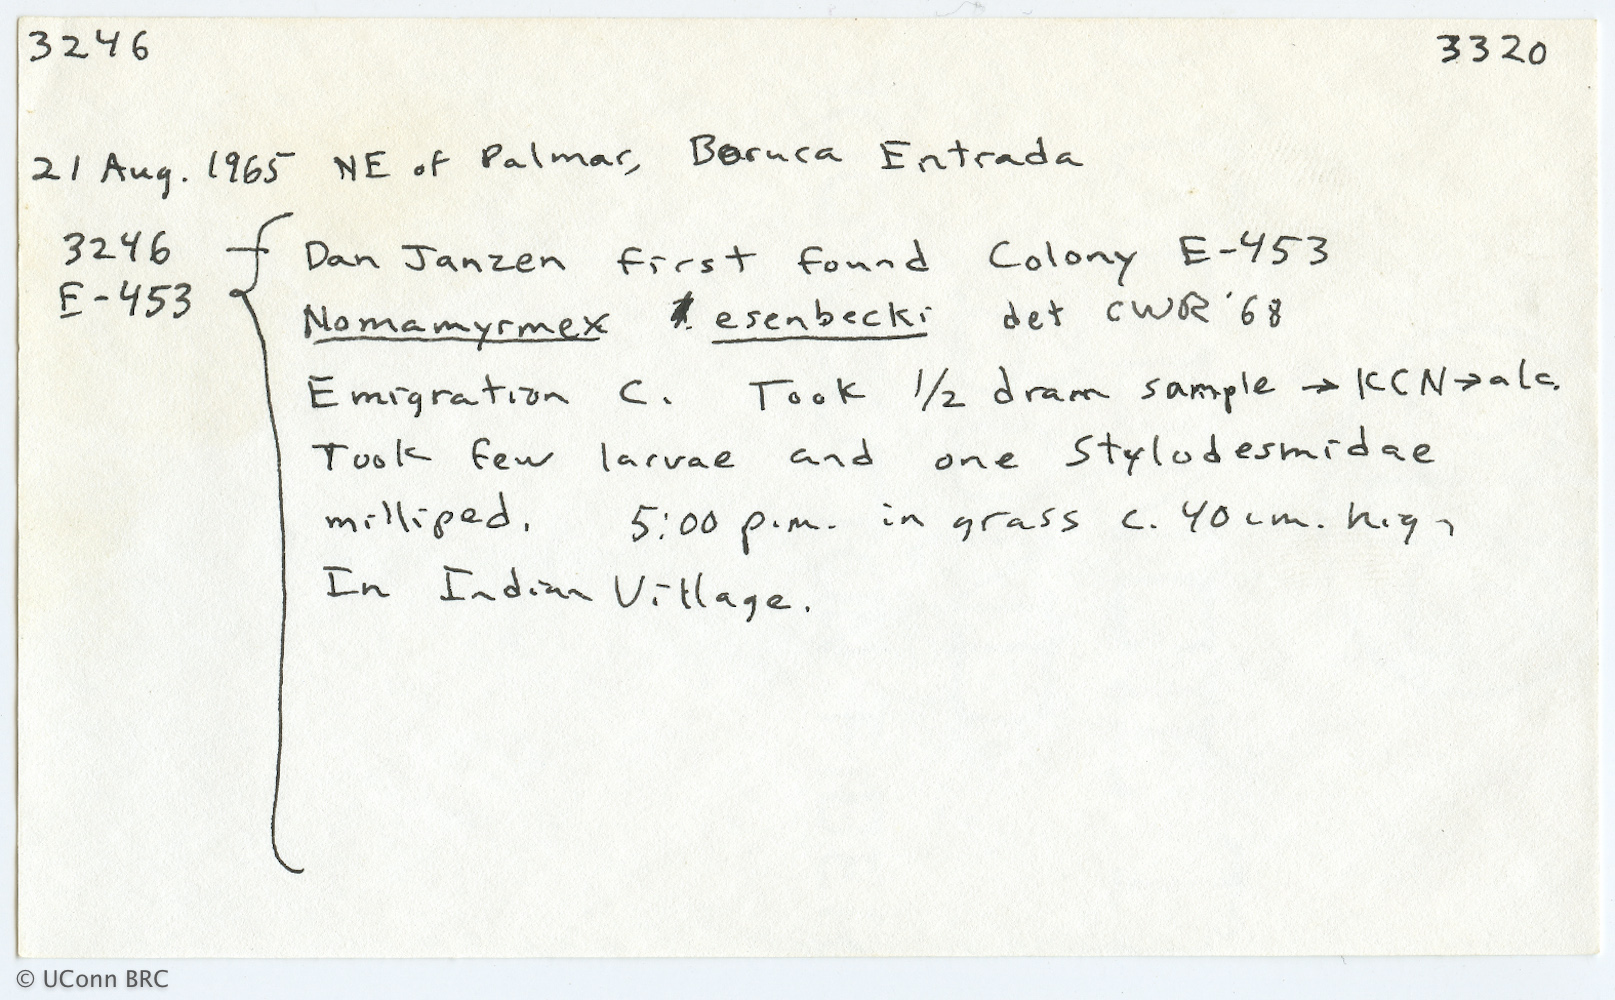 3246 3320
21 Aug. 1965 NE of Palmar, Boruca Entrada
3246 Dan Janzen first found Colony E-453
E-453 Nomamyrmex esenbecki det CWR '68
Emigration C. Took 1/2 dram sample → KCN → alc.
Took few larvae and one Stylodesmidae
milliped. 5:00 p.m. in grass c. 40 cm. high
In Indian Village.
© UConn BRC